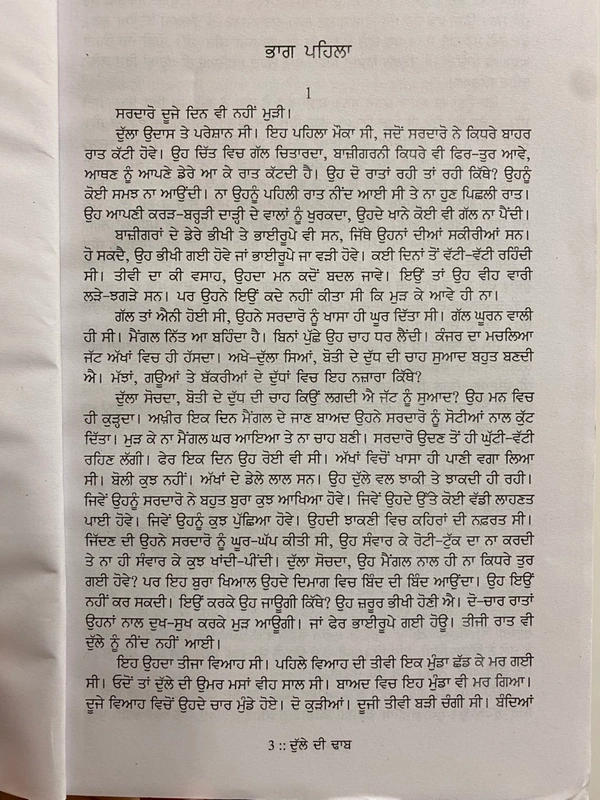 ਭਾਗ ਪਹਿਲਾ
1
ਸਰਦਾਰੋ ਦੂਜੇ ਦਿਨ ਵੀ ਨਹੀਂ ਮੁੜੀ।
ਦੁੱਲਾ ਉਦਾਸ ਤੇ ਪਰੇਸ਼ਾਨ ਸੀ। ਇਹ ਪਹਿਲਾ ਮੌਕਾ ਸੀ, ਜਦੋਂ ਸਰਦਾਰੋ ਨੇ ਕਿਧਰੇ ਬਾਹਰ
ਰਾਤ ਕੱਟੀ ਹੋਵੇ। ਉਹ ਚਿੱਤ ਵਿਚ ਗੱਲ ਚਿਤਾਰਦਾ, ਬਾਜ਼ੀਗਰਨੀ ਕਿਧਰੇ ਵੀ ਫਿਰ-ਤੁਰ ਆਵੇ,
ਆਥਣ ਨੂੰ ਆਪਣੇ ਡੇਰੇ ਆ ਕੇ ਰਾਤ ਕੱਟਦੀ ਹੈ। ਉਹ ਦੋ ਰਾਤਾਂ ਰਹੀ ਤਾਂ ਰਹੀ ਕਿੱਥੇ? ਉਹਨੂੰ
ਕੋਈ ਸਮਝ ਨਾ ਆਉਂਦੀ। ਨਾ ਉਹਨੂੰ ਪਹਿਲੀ ਰਾਤ ਨੀਂਦ ਆਈ ਸੀ ਤੇ ਨਾ ਹੁਣ ਪਿਛਲੀ ਰਾਤ।
ਉਹ ਆਪਣੀ ਕਰੜ-ਬਰੜੀ ਦਾੜ੍ਹੀ ਦੇ ਵਾਲਾਂ ਨੂੰ ਖੁਰਕਦਾ, ਉਹਦੇ ਖਾਨੇ ਕੋਈ ਵੀ ਗੱਲ ਨਾ ਪੈਂਦੀ।
ਬਾਜ਼ੀਗਰਾਂ ਦੇ ਡੇਰੇ ਭੀਖੀ ਤੇ ਭਾਈਰੂਪੇ ਵੀ ਸਨ, ਜਿੱਥੇ ਉਹਨਾਂ ਦੀਆਂ ਸਕੀਰੀਆਂ ਸਨ।
ਹੋ ਸਕਦੈ, ਉਹ ਭੀਖੀ ਗਈ ਹੋਵੇ ਜਾਂ ਭਾਈਰੂਪੇ ਜਾ ਵੜੀ ਹੋਵੇ। ਕਈ ਦਿਨਾਂ ਤੋਂ ਵੱਟੀ-ਵੱਟੀ ਰਹਿੰਦੀ
ਸੀ। ਤੀਵੀ ਦਾ ਕੀ ਵਸਾਹ, ਉਹਦਾ ਮਨ ਕਦੋਂ ਬਦਲ ਜਾਵੇ। ਇਉਂ ਤਾਂ ਉਹ ਵੀਹ ਵਾਰੀ
ਲੜੇ-ਝਗੜੇ ਸਨ। ਪਰ ਉਹਨੇ ਇਉਂ ਕਦੇ ਨਹੀਂ ਕੀਤਾ ਸੀ ਕਿ ਮੁੜ ਕੇ ਆਵੇ ਹੀ ਨਾ।
ਗੱਲ ਤਾਂ ਐਨੀ ਹੋਈ ਸੀ, ਉਹਨੇ ਸਰਦਾਰੋ ਨੂੰ ਖਾਸਾ ਹੀ ਘੂਰ ਦਿੱਤਾ ਸੀ। ਗੱਲ ਘੂਰਨ ਵਾਲੀ
ਹੀ ਸੀ। ਮੈਂਗਲ ਨਿੱਤ ਆ ਬਹਿੰਦਾ ਹੈ। ਬਿਨਾਂ ਪੁੱਛੇ ਉਹ ਚਾਹ ਧਰ ਲੈਂਦੀ। ਕੰਜਰ ਦਾ ਮਚਲਿਆ
ਜੱਟ ਅੱਖਾਂ ਵਿਚ ਹੀ ਹੱਸਦਾ। ਅਖੇ-ਦੁੱਲਾ ਸਿਆਂ, ਬੋਤੀ ਦੇ ਦੁੱਧ ਦੀ ਚਾਹ ਸੁਆਦ ਬਹੁਤ ਬਣਦੀ
ਐ। ਮੱਝਾਂ, ਗਊਆਂ ਤੇ ਬੱਕਰੀਆਂ ਦੇ ਦੁੱਧਾਂ ਵਿਚ ਇਹ ਨਜ਼ਾਰਾ ਕਿੱਥੇ?
ਦੁੱਲਾ ਸੋਚਦਾ, ਬੋਤੀ ਦੇ ਦੁੱਧ ਦੀ ਚਾਹ ਕਿਉਂ ਲਗਦੀ ਐ ਜੱਟ ਨੂੰ ਸੁਆਦ? ਉਹ ਮਨ ਵਿਚ
ਹੀ ਕੁੜ੍ਹਦਾ। ਅਖ਼ੀਰ ਇਕ ਦਿਨ ਮੈਂਗਲ ਦੇ ਜਾਣ ਬਾਅਦ ਉਹਨੇ ਸਰਦਾਰੋ ਨੂੰ ਸੋਟੀਆਂ ਨਾਲ ਕੁੱਟ
ਦਿੱਤਾ। ਮੁੜ ਕੇ ਨਾ ਮੈਂਗਲ ਘਰ ਆਇਆ ਤੇ ਨਾ ਚਾਹ ਬਣੀ। ਸਰਦਾਰੋ ਉਦਣ ਤੋਂ ਹੀ ਘੁੱਟੀ-ਵੱਟੀ
ਰਹਿਣ ਲੱਗੀ। ਫੇਰ ਇਕ ਦਿਨ ਉਹ ਰੋਈ ਵੀ ਸੀ। ਅੱਖਾਂ ਵਿਚੋਂ ਖਾਸਾ ਹੀ ਪਾਣੀ ਵਗਾ ਲਿਆ
ਸੀ। ਬੋਲੀ ਕੁਝ ਨਹੀਂ। ਅੱਖਾਂ ਦੇ ਡੇਲੇ ਲਾਲ ਸਨ। ਉਹ ਦੁੱਲੇ ਵਲ ਝਾਕੀ ਤੇ ਝਾਕਦੀ ਹੀ ਰਹੀ।
ਜਿਵੇਂ ਉਹਨੂੰ ਸਰਦਾਰੋ ਨੇ ਬਹੁਤ ਬੁਰਾ ਕੁਝ ਆਖਿਆ ਹੋਵੇ। ਜਿਵੇਂ ਉਹਦੇ ਉੱਤੇ ਕੋਈ ਵੱਡੀ ਲਾਹਣਤ
ਪਾਈ ਹੋਵੇ। ਜਿਵੇਂ ਉਹਨੂੰ ਕੁਝ ਪੁੱਛਿਆ ਹੋਵੇ। ਉਹਦੀ ਝਾਕਣੀ ਵਿਚ ਕਹਿਰਾਂ ਦੀ ਨਫ਼ਰਤ ਸੀ।
ਜਿੱਦਣ ਦੀ ਉਹਨੇ ਸਰਦਾਰੋ ਨੂੰ ਘੂਰ-ਘੱਪ ਕੀਤੀ ਸੀ, ਉਹ ਸੰਵਾਰ ਕੇ ਰੋਟੀ-ਟੁੱਕ ਦਾ ਨਾ ਕਰਦੀ
ਤੇ ਨਾ ਹੀ ਸੰਵਾਰ ਕੇ ਕੁਝ ਖਾਂਦੀ-ਪੀਂਦੀ। ਦੁੱਲਾ ਸੋਚਦਾ, ਉਹ ਮੈਂਗਲ ਨਾਲ ਹੀ ਨਾ ਕਿਧਰੇ ਤੁਰ
ਗਈ ਹੋਵੇ? ਪਰ ਇਹ ਬੁਰਾ ਖਿਆਲ ਉਹਦੇ ਦਿਮਾਗ ਵਿਚ ਬਿੰਦ ਦੀ ਬਿੰਦ ਆਉਂਦਾ। ਉਹ ਇਉਂ
ਨਹੀਂ ਕਰ ਸਕਦੀ। ਇਉਂ ਕਰਕੇ ਉਹ ਜਾਊਗੀ ਕਿੱਥੇ? ਉਹ ਜ਼ਰੂਰ ਭੀਖੀ ਹੋਣੀ ਐ। ਦੋ-ਚਾਰ ਰਾਤਾਂ
ਉਹਨਾਂ ਨਾਲ ਦੁਖ-ਸੁਖ ਕਰਕੇ ਮੁੜ ਆਊਗੀ। ਜਾਂ ਫੇਰ ਭਾਈਰੂਪੇ ਗਈ ਹੋਊ। ਤੀਜੀ ਰਾਤ ਵੀ
ਦੁੱਲੇ ਨੂੰ ਨੀਂਦ ਨਹੀਂ ਆਈ।
ਇਹ ਉਹਦਾ ਤੀਜਾ ਵਿਆਹ ਸੀ। ਪਹਿਲੇ ਵਿਆਹ ਦੀ ਤੀਵੀ ਇਕ ਮੁੰਡਾ ਛੱਡ ਕੇ ਮਰ ਗਈ
ਸੀ। ਓਦੋਂ ਤਾਂ ਦੁੱਲੇ ਦੀ ਉਮਰ ਮਸਾਂ ਵੀਹ ਸਾਲ ਸੀ। ਬਾਅਦ ਵਿਚ ਇਹ ਮੁੰਡਾ ਵੀ ਮਰ ਗਿਆ।
ਦੂਜੇ ਵਿਆਹ ਵਿਚੋਂ ਉਹਦੇ ਚਾਰ ਮੁੰਡੇ ਹੋਏ। ਦੋ ਕੁੜੀਆਂ। ਦੂਜੀ ਤੀਵੀ ਬੜੀ ਚੰਗੀ ਸੀ। ਬੰਦਿਆਂ
3 :: ਦੁੱਲੇ ਦੀ ਢਾਬ